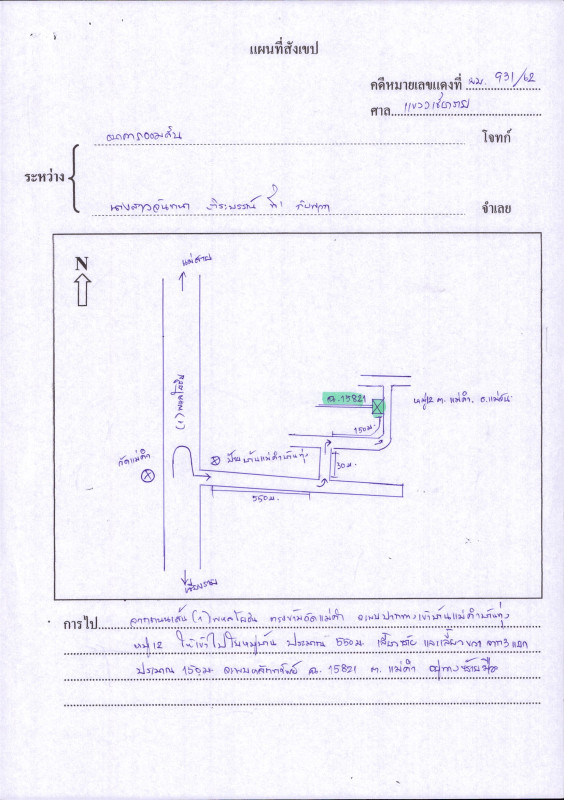 แผนที่สังเขป
คดีหมายเลขแดงที่ ผบ. 931/62
ศาล แขวงเชียงราย
ธนาคารออมสิน โจทก์
ระหว่าง
นางสาวฉันทนา ที่1 กับพวก จำเลย
N
แม่สาย
(1) พหลโยธิน
ฉ.15821
หมู่12 ต. แม่คำ อ.แม่จัน
150ม.
วัดแม่คำ
ป้ายบ้านแม่คำบ้านทุ่ง
30ม.
550ม.
เชียงราย
การไป จากถนนเส้น (1) พหลโยธิน ตรงข้ามวัดแม่คำ จะพบปากทางเข้าบ้านแม่คำบ้านทุ่ง
หมู่12 ให้เข้าไปในหมู่บ้าน ประมาณ 550ม เลี้ยวซ้าย และเลี้ยวขวา จาก3แยก
ประมาณ 150ม จะพบหลักทรัพย์ ฉ. 15821 ต. แม่คำ อยู่ทางซ้ายมือ